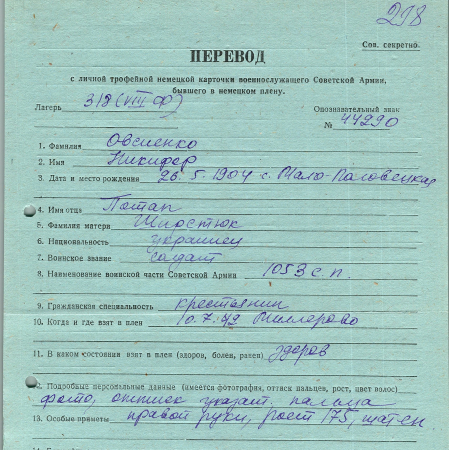 218
Сов. секретно.
ПЕРЕВОД
с личной трофейной немецкой карточки военнослужащего Советской Армии,
бывшего в немецком плену.
Лагерь 318 (VIII Ф)
Опознавательный знак
№ 44290
1. Фамилия Овсиенко
2. Имя Никифер
3. Дата и место рождения 26.5-1904 с. Мало-Паловецкая
4. Имя отца Потап
5. Фамилия матери Ширстюк
6. Национальность украинец
7. Воинское звание солдат
8. Наименование воинской части Советской Армии 1053 с.п.
9. Гражданская специальность крестьянин
10. Когда и где взят в плен 10.7.42 Миллерово
11. В каком состоянии взят в плен (здоров, болен, ранен) здоров
12. Подробные персональные данные (имеется фотография, оттиск пальцев, рост, цвет волос)
фото, оттиск указат. пальца
13. Особые приметы правой руки, рост 175, шатен